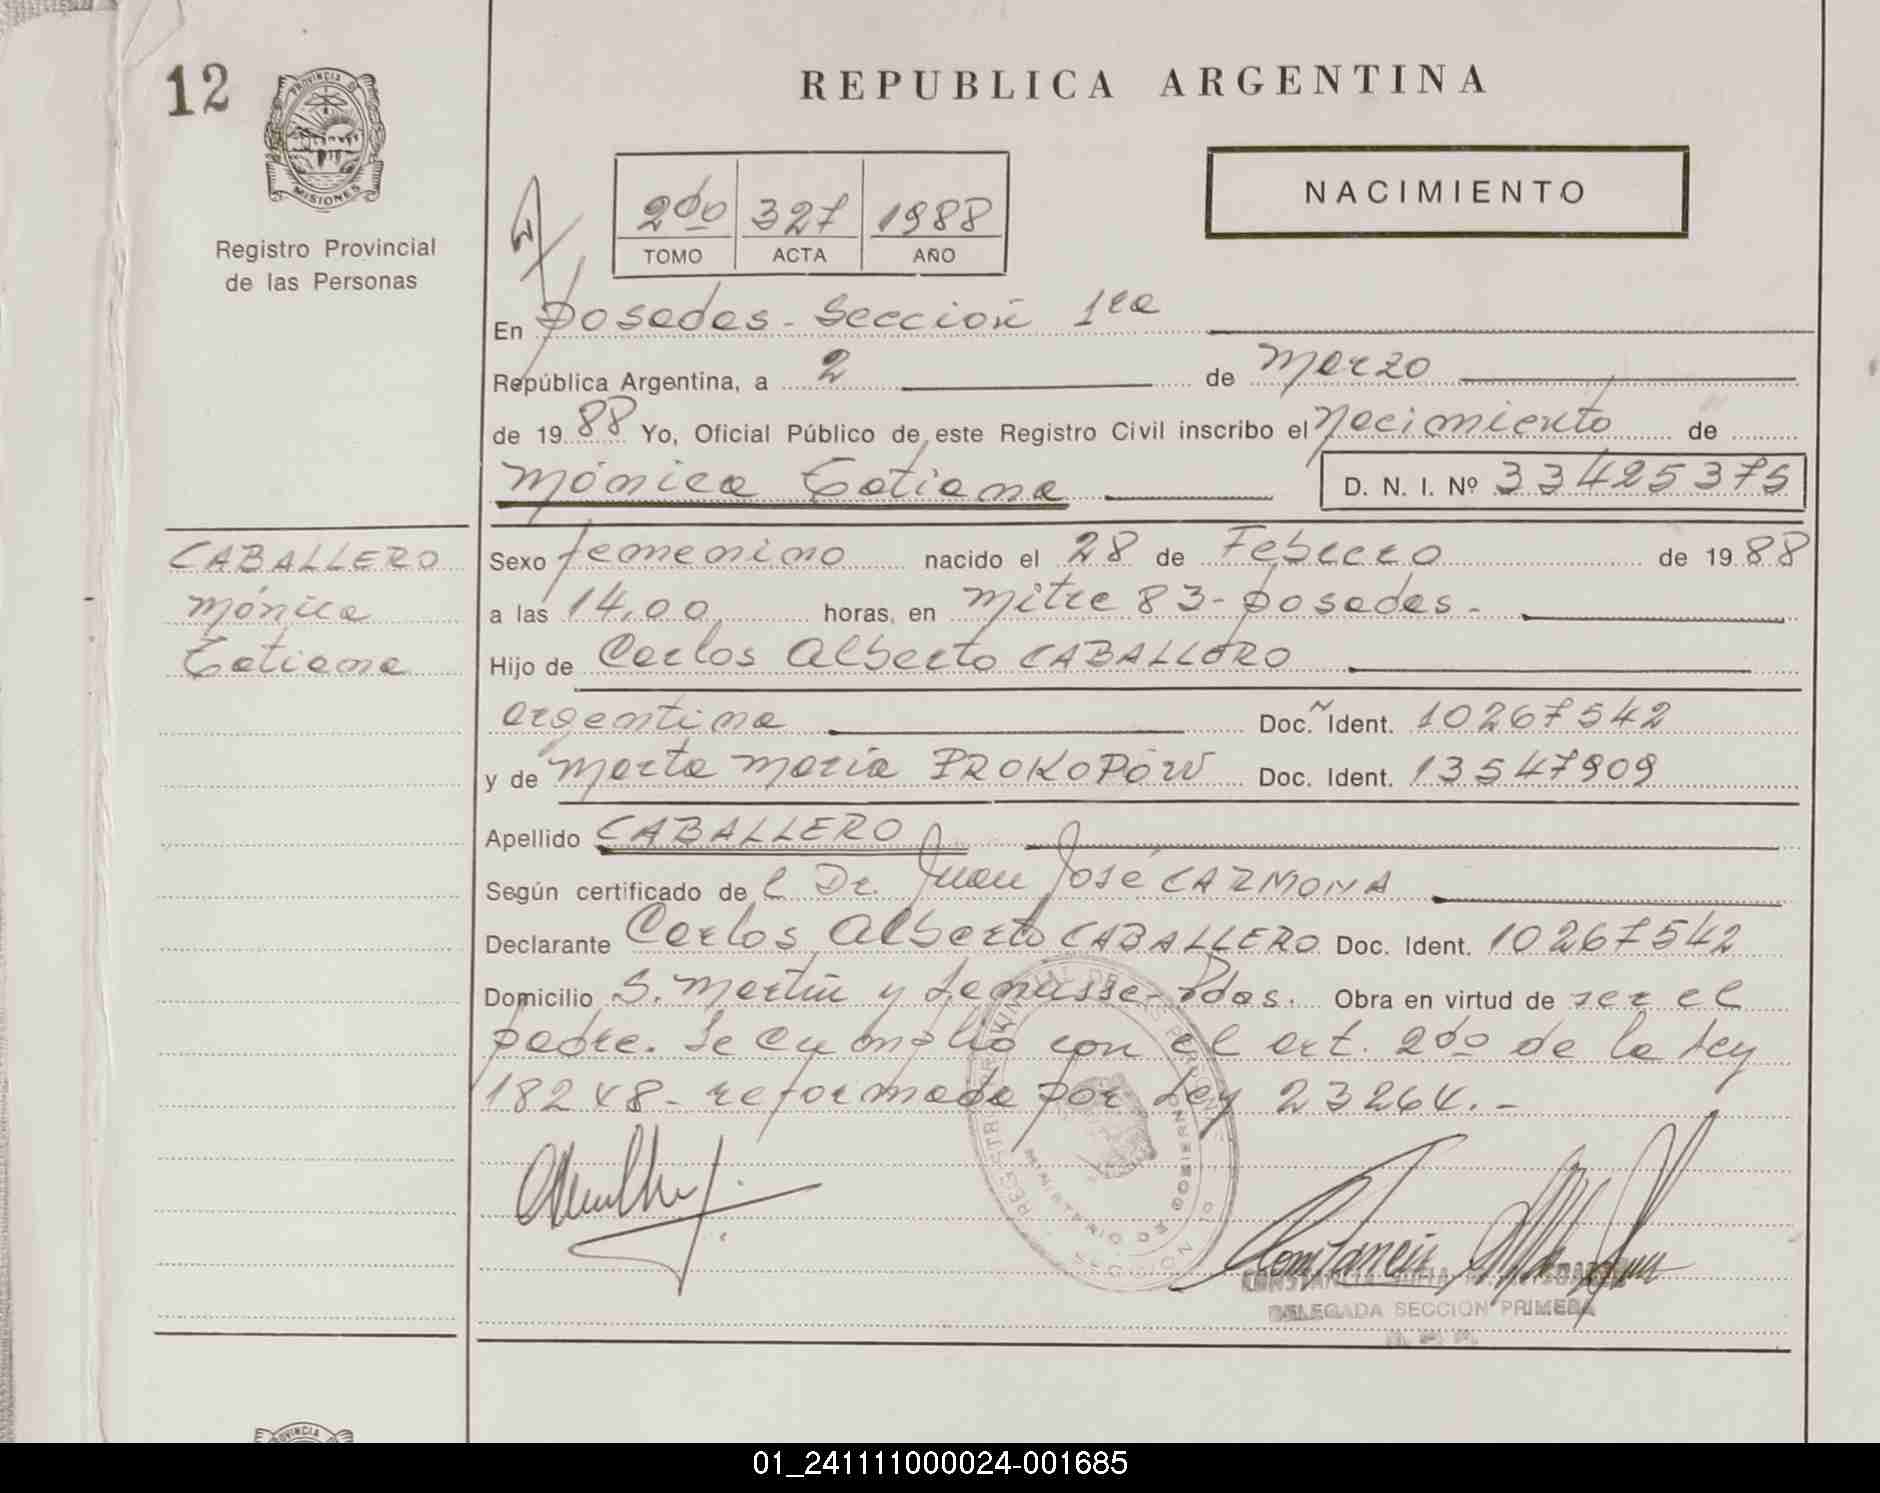 12
PROVINCIA DE
MISIONES
Registro Provincial
de las Personas
REPUBLICA ARGENTINA
2do 327 1988
TOMO ACTA AÑO
NACIMIENTO
En Posadas - Sección 1ra
República Argentina, a 2 de Marzo
de 1988 Yo, Oficial Público de este Registro Civil inscribo el Nacimiento de
Mónica Tatiana D. N. I. Nº 33425375
CABALLERO
Mónica
Tatiana
Sexo femenino nacido el 28 de Febrero de 1988
a las 14,00 horas, en Mitre 83 - Posadas -
Hijo de Carlos Alberto CABALLERO
argentina Doc. Ident. 10267542
y de Marta María PROKOPÓW Doc. Ident. 13547909
Apellido CABALLERO
Según certificado de l Dr. Juan José CARMONA
Declarante Carlos Alberto CABALLERO Doc. Ident. 10267542
Domicilio S. Martín y Pdas. Obra en virtud de ser el
padre. Se cumplió con el art. 2do de la Ley
18248 - reformada por Ley 23264. -
DELEGADA SECCION PRIMERA
PROVINCIA
01_241111000024-001685